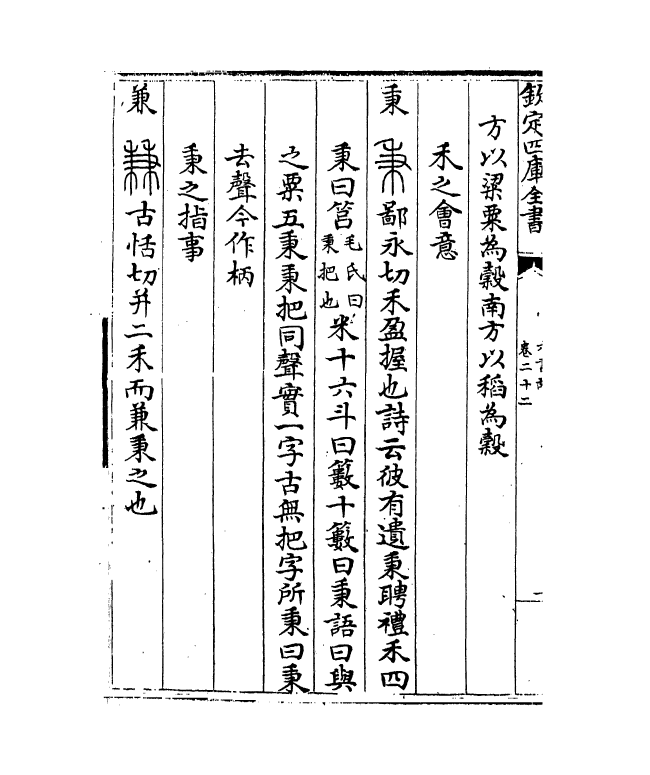 欽定四庫全書
卷二十二
方以粱粟為穀南方以稻為穀
禾之會意
秉 鄙永切禾盈握也詩云彼有遺秉聘禮禾四
秉曰筥毛氏曰秉把也米十六斗曰籔十籔曰秉語曰與
之粟五秉秉把同聲實一字古無把字所秉曰秉
去聲今作柄
秉之指事
兼 古恬切并二禾而兼秉之也